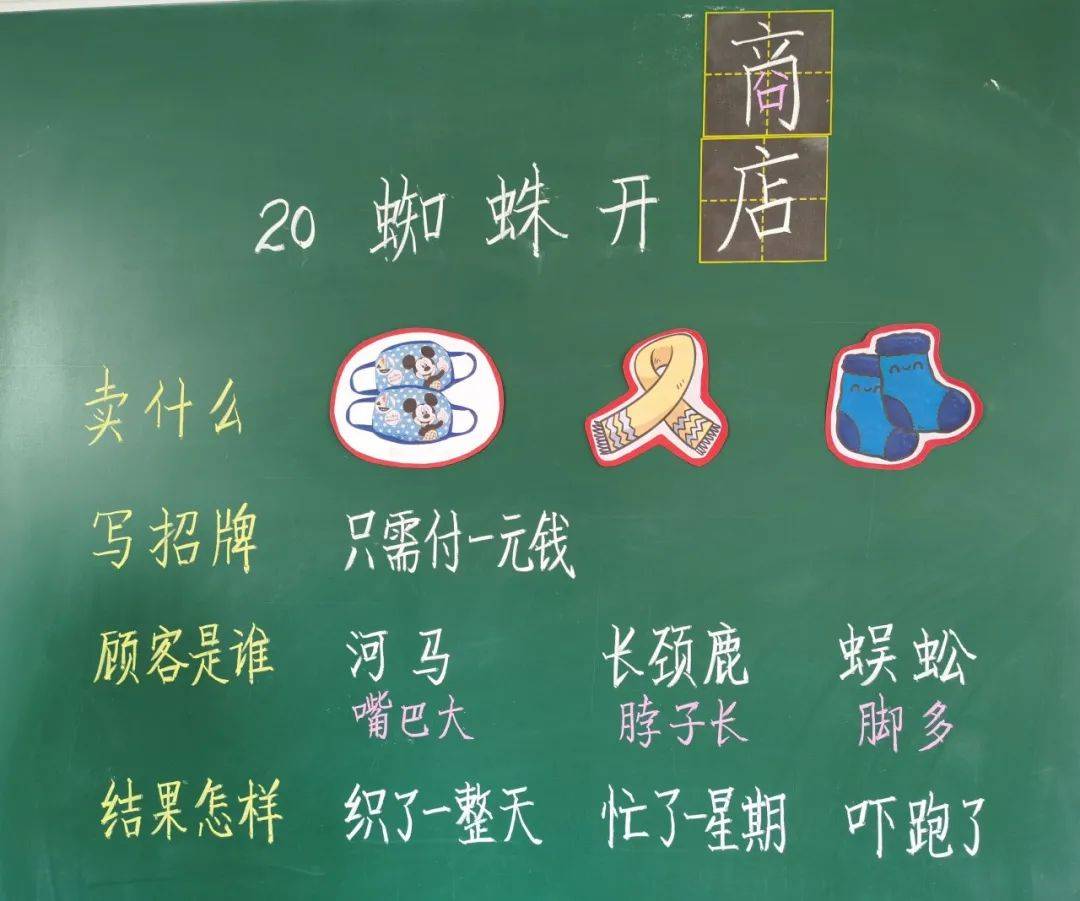 商
20 蜘蛛开店
卖什么
写招牌 只需付一元钱
顾客是谁 河马 长颈鹿 蜈蚣
嘴巴大 脖子长 脚多
结果怎样 织了一整天 忙了一星期 吓跑了